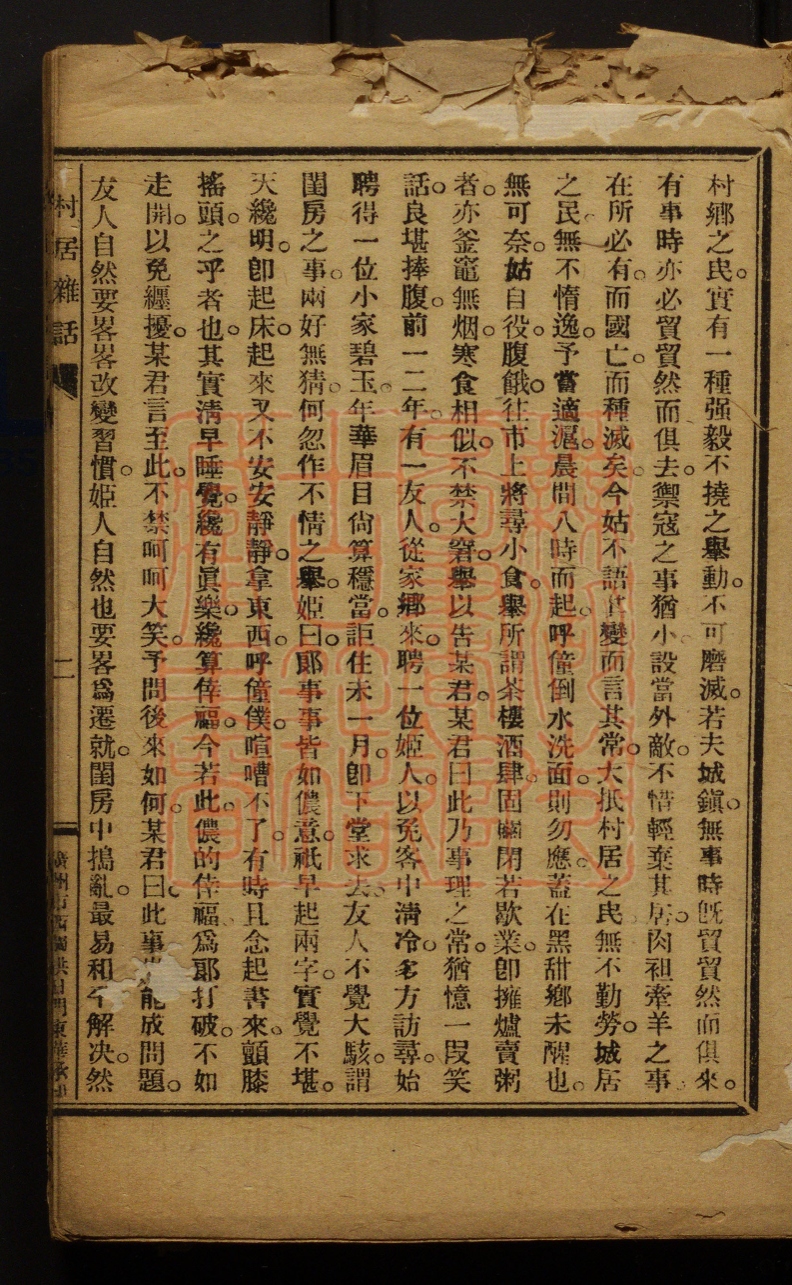 村鄉之民。實有一種强毅不撓之舉動。不可磨滅。若夫城鎭。無事時旣貿貿然而俱來。
有事時亦必貿貿然而俱去。禦寇之事猶小。設當外敵。不惜輕棄其居。肉袒牽羊之事。
在所必有。而國亡。而種滅矣。今姑不語其變而言其常。大抵村居之民無不勤勞。城居
之民。無不惰逸。予嘗適滬。晨間八時而起。呼僮倒水洗面。則勿應。蓋在黑甜鄉未醒也。
無可奈。姑自役。腹餓。往市上將尋小食。舉所謂茶樓酒肆。固幽閉若歇業。卽擁爐賣粥
者。亦釜竈無烟。寒食相似。不禁大窘。舉以告某君。某君曰此乃事理之常。猶憶一段笑
話。良堪捧腹。前一二年。有一友人。從家鄉來。聘一位姬人。以免客中淸冷。多方訪尋。始
聘得一位小家碧玉。年華眉目尙算穩當。詎住未一月。卽下堂求去。友人不覺大駭。謂
閨房之事。兩好無猜。何忽作不情之舉。姬曰。郞事事皆如儂意。祇早起兩字。實覺不堪。
天纔明。卽起床。起來又不安安靜靜。拿東西。呼僮僕。喧嘈不了。有時且念起書來。顫膝
搖頭。之乎者也。其實淸早睡覺。纔有眞樂。纔算倖福。今若此。儂的倖福。爲郞打破。不如
走開。以免纏擾。某君言至此。不禁呵呵大笑。予問後來如何。某君曰。此事能成問題。
友人自然要畧畧改變習慣。姬人自然也要畧爲遷就。閨房中搗亂。最易和解决。然
村居雜話
二